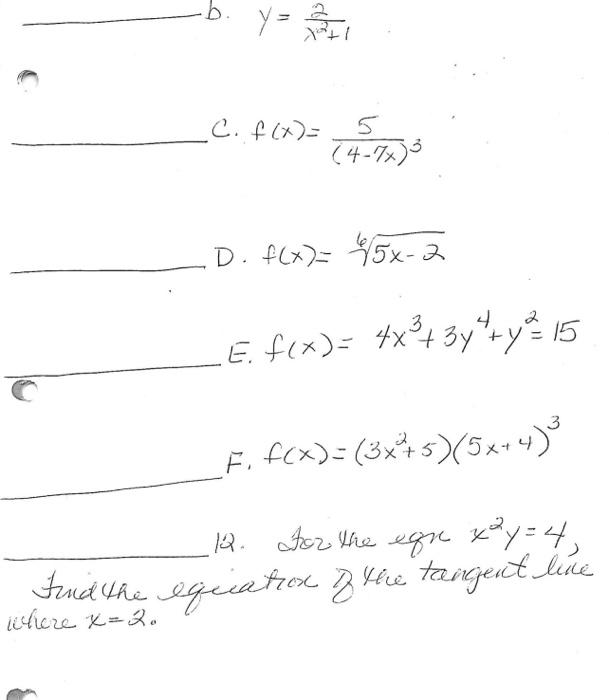 b. y = 2/(x²+1)
C. f(x) = 5/(4-7x)³
D. f(x) = ⁶√(5x-2)
E. f(x) = 4x³+3y⁴+y²=15
F. f(x) = (3x²+5)(5x+4)³
12. For the eqn x²y=4,
Find the equation of the tangent line
where x=2.